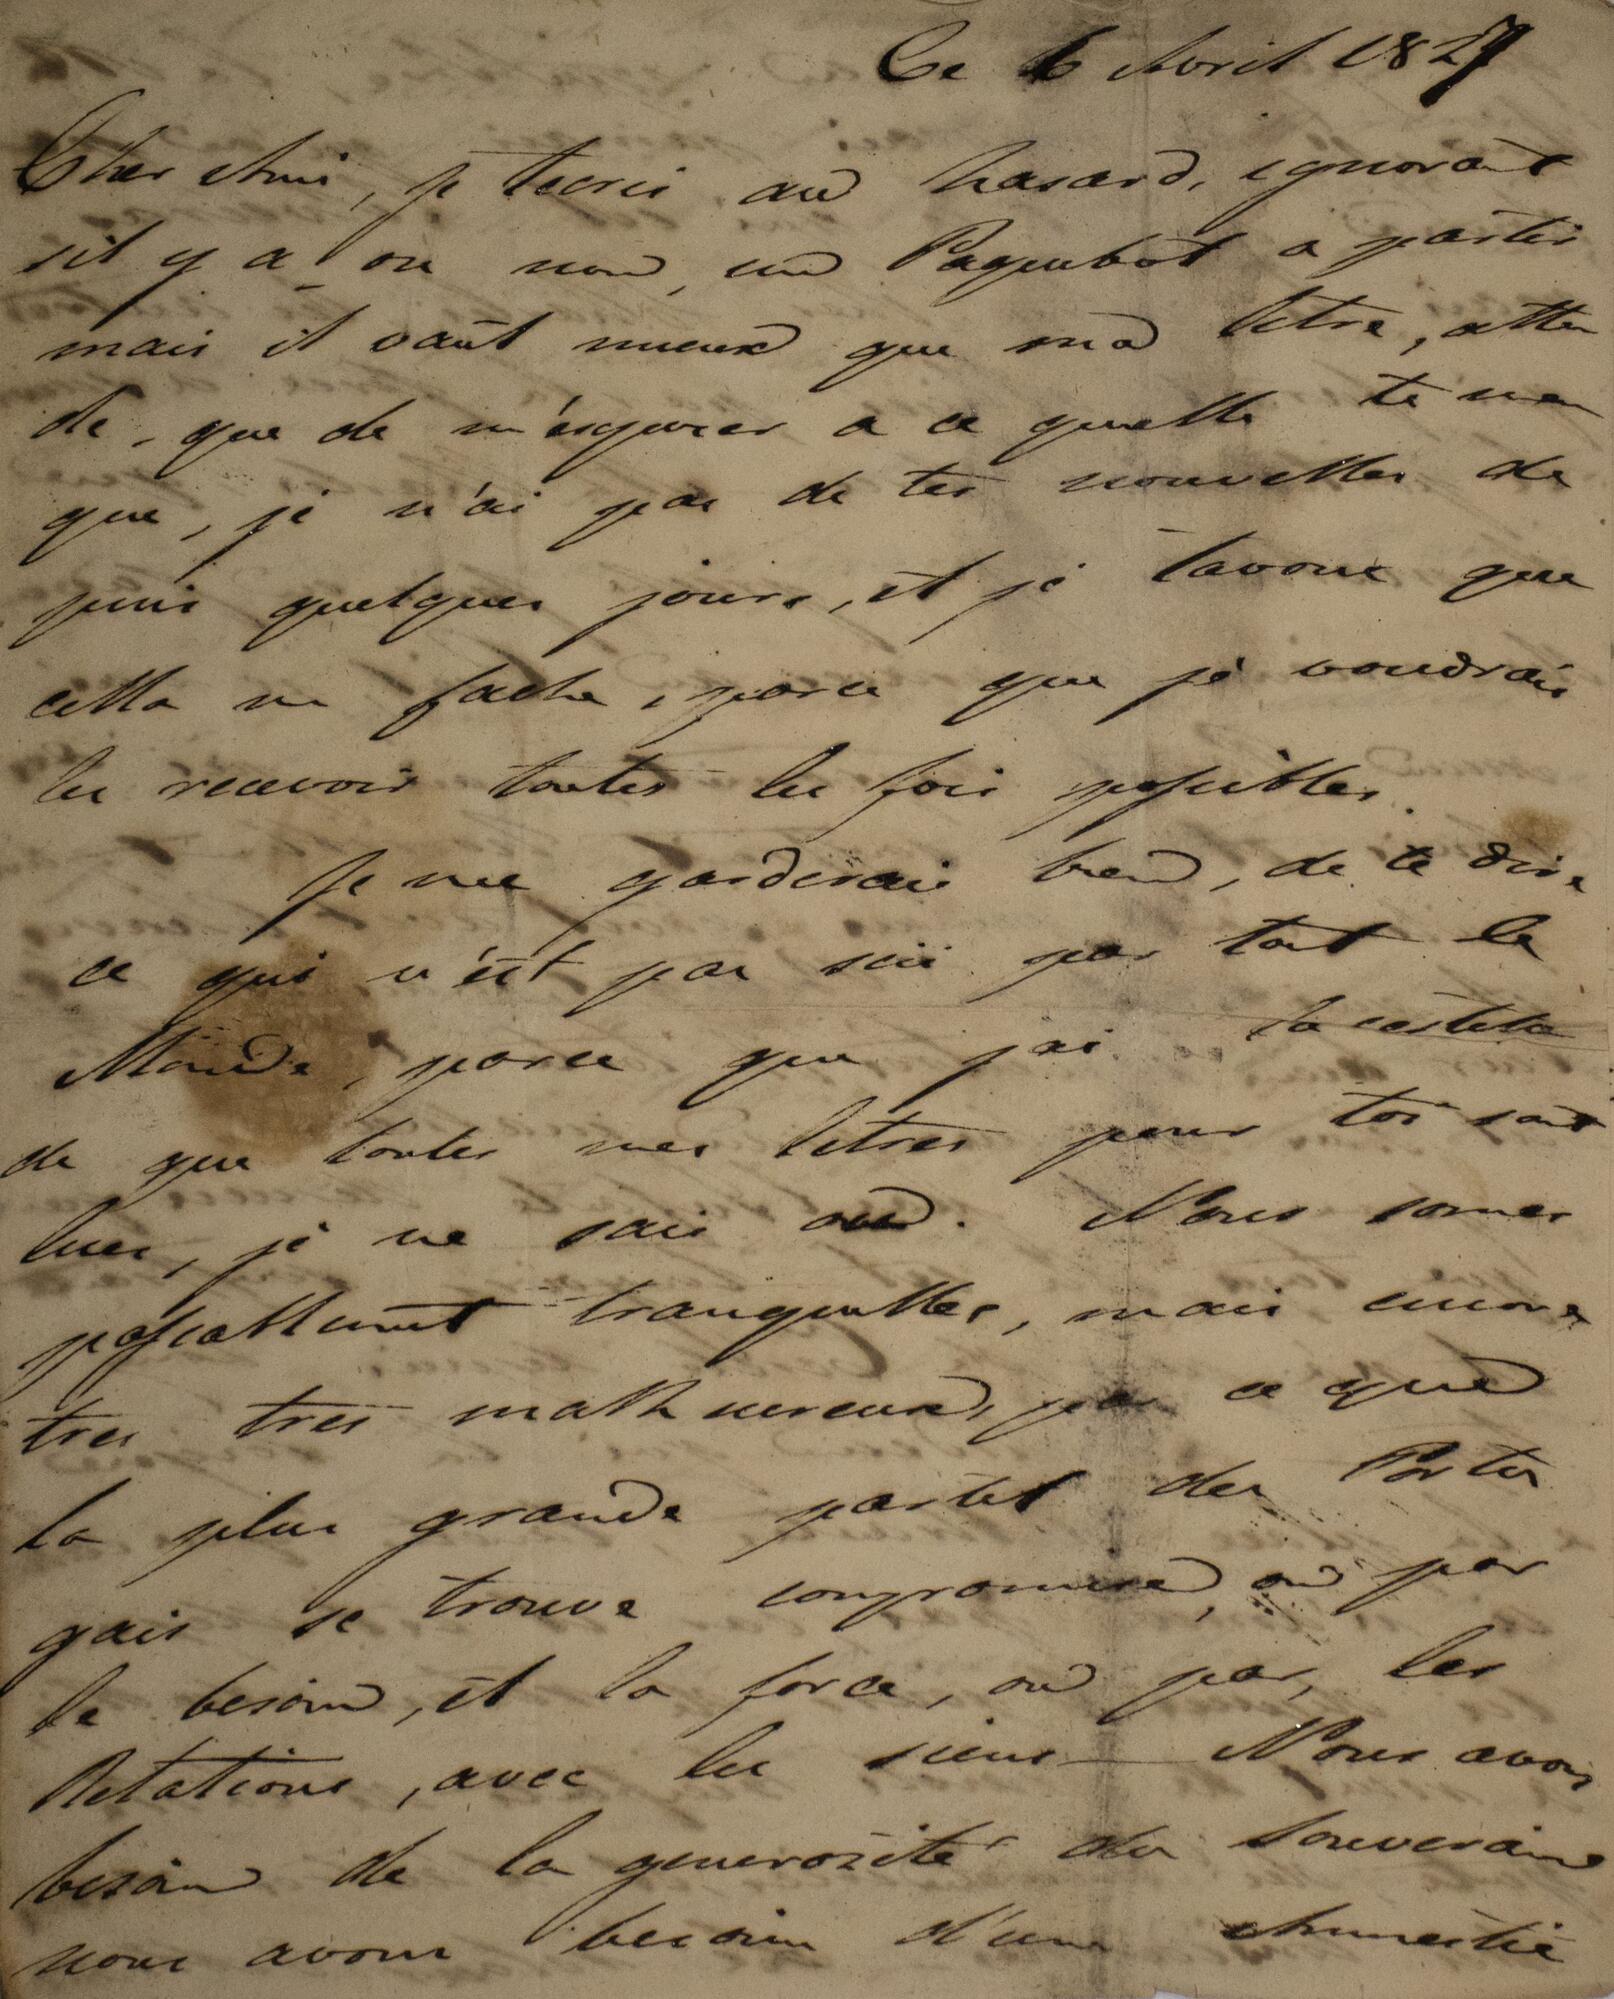 Ce 6 Avril 1827
Cher Ami, je tecris au hasard, ignorant
sil y a ou non, un Paquebot a partir
mais il vaut mieux que ma letre, atten
de, que de m'exposer a ce quelle te man
que, je n'ai pas de tes nouvelles de
puis quelques jours, et je tavoue que
cella me fache, parce que je voudrais
les recevoir toutes les fois possibles.
Je me garderais bien, de te dire
ce qui n'est pas sçu par tout le
Monde, parce que jai la certitu
de que toutes mes letres pour toi sont
lues, je ne sais ou. Nous somes
passablement tranquilles, mais encore
tres tres malheureux, par ce que
la plus grande partie des Portu
gais se trouve compromise, ou par
le besoin, et la force, ou par, les
Relations, avec les siens — Nous avons
besoin de la generosité du Souverain
nous avons besoin d'une Amnestie